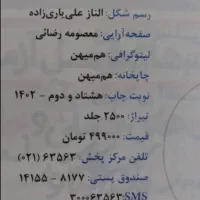 رسم شکل: الناز علی‌یاری‌زاده
صفحه‌آرایی: معصومه رضائی
لیتوگرافی: هم‌میهن
چاپخانه: هم‌میهن
نوبت چاپ: هشتاد و دوم - ۱۴۰۲
تیراژ: ۲۵۰۰ جلد
قیمت: ۴۹۹۰۰۰ تومان
تلفن مرکز پخش: ۶۳۵۶۳ (۰۲۱)
صندوق پستی: ۸۱۷۷ - ۱۴۱۵۵
SMS: ۳۰۰۰۶۳۵۶۳